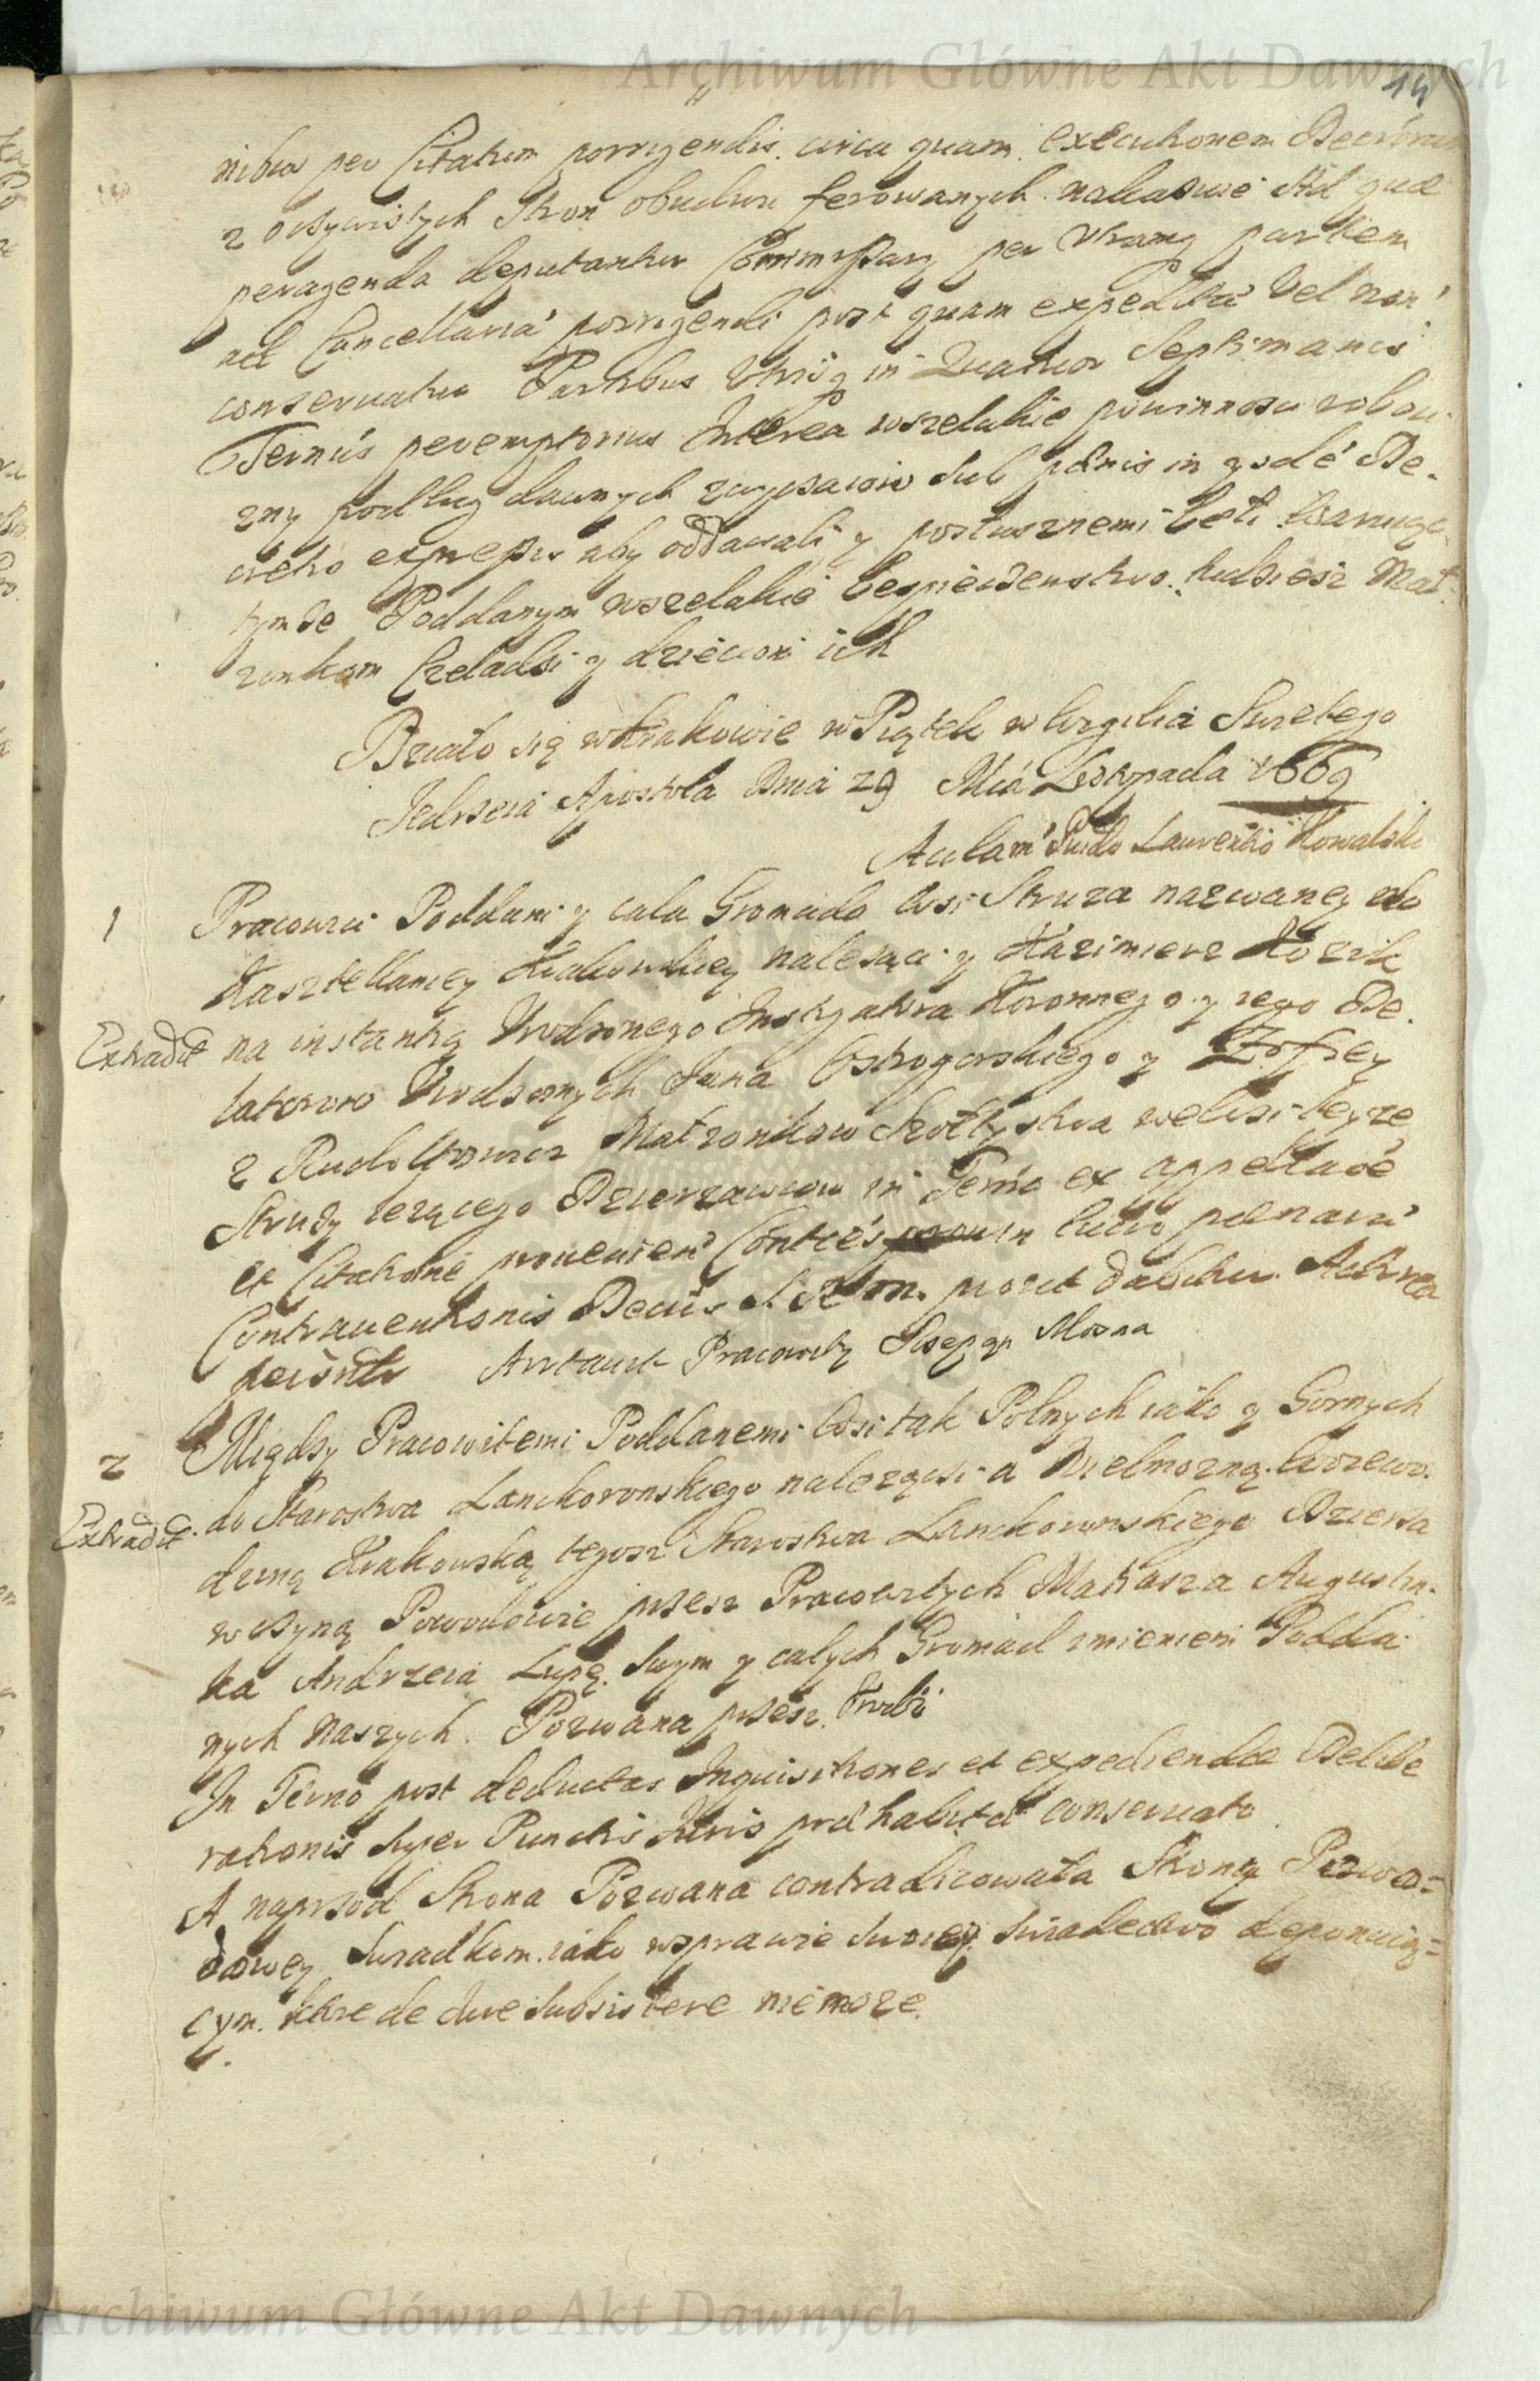 Archiwum Główne Akt Dawnych
14
nibus per Citatum porrigendis. circa quam executionem Decretum
z oczywistych Stron obudwu ferowanych nakazuie Ad quæ
peragenda deputantur Commissarij per Utramq partem
ad Cancellariā porrigendi post quam expeditā vel non
conservatur Partibus Utrisq in Quatuor Septimanis
Termūs peremptorius Interea wszelakie powinnosci robou
zny podług dawnych zwyczaiow Sub pœnis in eodē De-
creto expressis aby oddawali y posłusznemi beli Waruiąc
tymże Poddanym wszelakie bezpieczenstwo tudziesz Mał
zonkom Czeladzi y dzieciom ich
Działo się w Krakowie w Piątek w Wigilia Swietego
Jedrzeia Apostola Dnia 29 Mca Listopada 1669
Laurentio Kowalski
1 Pracowici Poddani y cala Gromada Wsi Struza nazwaney do
Kasztellaniey Krakowskiey nalezący y Kazimierz Kozik
Extradit na instantią Urodzonego Instygatora Koronnego y iego De
latorow Urodzonych Jana Ostrogorskiego y Zofiey
z Małzonkow Szołtystwa we Wsi teyze
Struzy lezącego Dzierzawcow in Termo ex appellaoē
et Citatione provenien Contēs in lucro pœnarū
Contraventionis Decris S. R. M. prout dabitur. Actorea
Arrtauit Pracowity Sczepan Mozna
2 Między Pracowitemi Poddanemi Wsi tak Polnych iako y Gornych
Extradit. do Starostwa Lanckoronskiego nalezącsi a Wielmozną. Woiewo
dziną Krakowską tegosz Starostwa Lanckoronskiego Dzierza
wczyną Powodowie przesz Pracowitych Matiasza Augustin.
ka Andrzeia Lupę. Swym y całych Gromad imieniem Podda
nych naszych. Pozwana przesz.
In Termo post deductas Inquisitiones et expediendæ Delibe
rationis Super Punctis Juris præhabitæ conservato
A naprzod Strona Pozwana contradicowała Strony Powo=
dowey Swiadkom iako wsprawie Swoiey Swiadectwo deponuią=
cym. ktore de Jure Subsistere niemoze.
Archiwum Główne Akt Dawnych